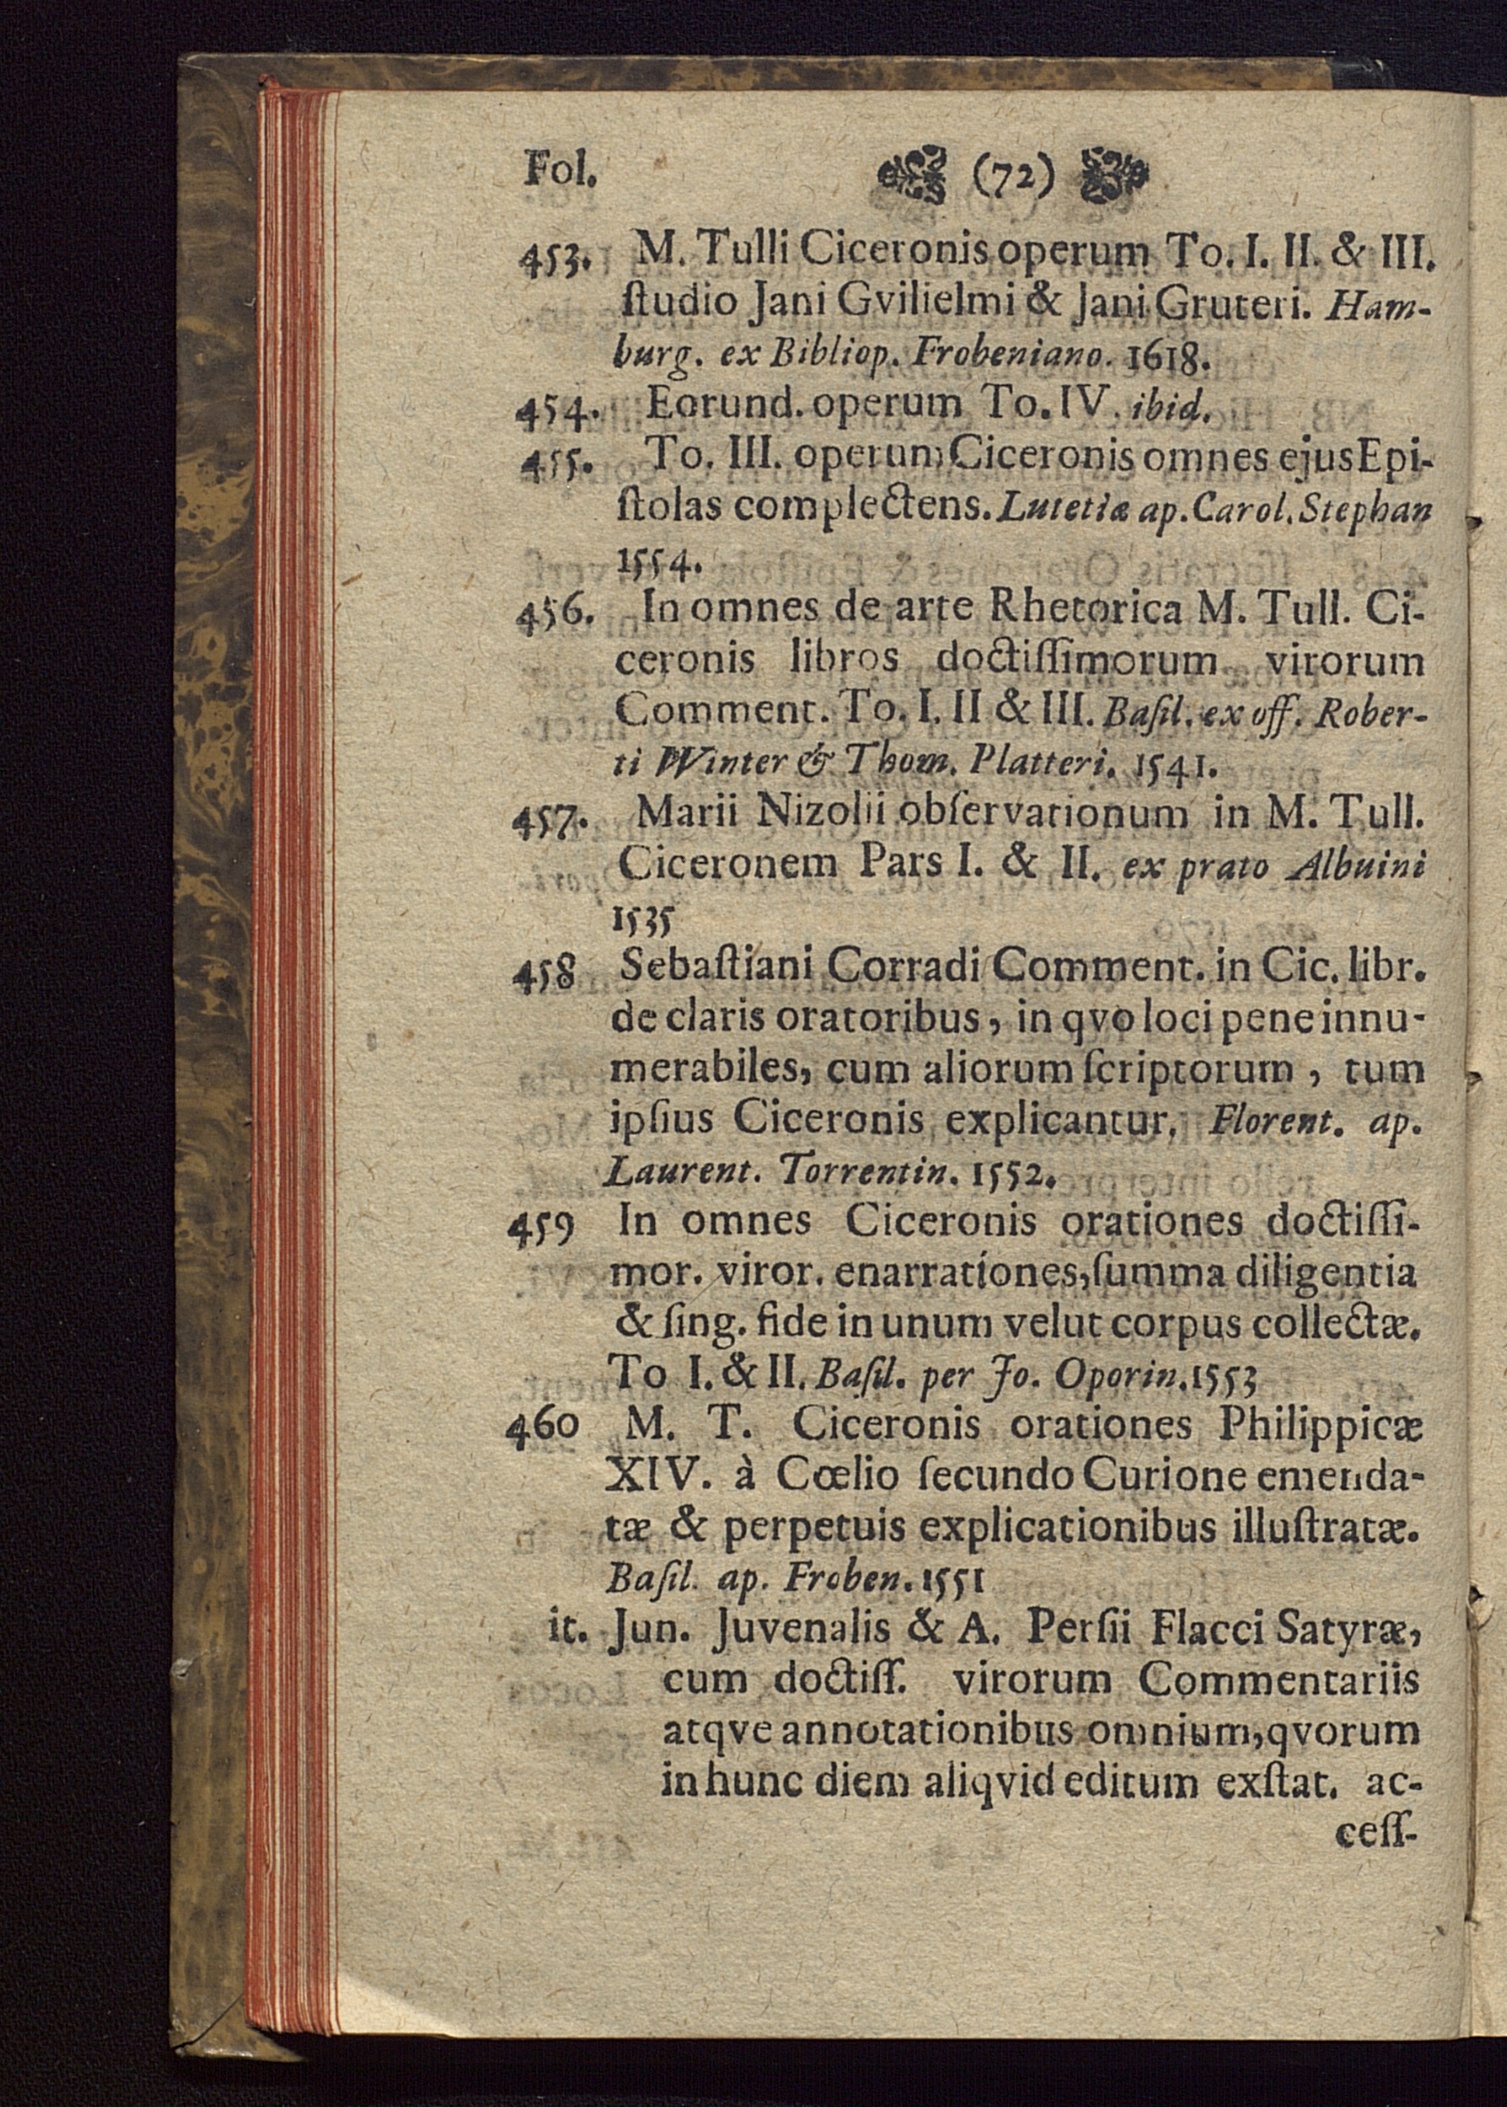 Fol. (72)
453. M. Tulli Ciceronis operum To. I. II. & III.
ſtudio Jani Gvilielmi & Jani Gruteri. Ham-
burg. ex Bibliop. Frobeniano. 1618.
454. Eorund. operum To. IV. ibid.
455. To. III. operum Ciceronis omnes ejus Epi-
ſtolas complectens. Lutetiæ ap. Carol. Stephan
1554.
456. In omnes de arte Rhetorica M. Tull. Ci-
ceronis libros doctiſſimorum virorum
Comment. To. I. II & III. Baſil. ex off. Rober-
ti Winter & Thom. Platteri. 1541.
457. Marii Nizolii obſervationum in M. Tull.
Ciceronem Pars I. & II. ex prato Albuini
1535
458 Sebaſtiani Corradi Comment. in Cic. libr.
de claris oratoribus, in qvo loci pene innu-
merabiles, cum aliorum ſcriptorum, tum
ipſius Ciceronis explicantur. Florent. ap.
Laurent. Torrentin. 1552.
459 In omnes Ciceronis orationes doctiſſi-
mor. viror. enarratíones, ſumma diligentia
& ſing. fide in unum velut corpus collectæ.
To I. & II. Baſil. per Jo. Oporin. 1553
460 M. T. Ciceronis orationes Philippicæ
XIV. à Cœlio ſecundo Curione emenda-
tæ & perpetuis explicationibus illuſtratæ.
Baſil. ap. Froben. 1551
it. Jun. Juvenalis & A. Perſii Flacci Satyræ,
cum doctiſſ. virorum Commentariis
atqve annotationibus omnium, qvorum
in hunc diem aliqvid editum exſtat. ac-
ceſſ-